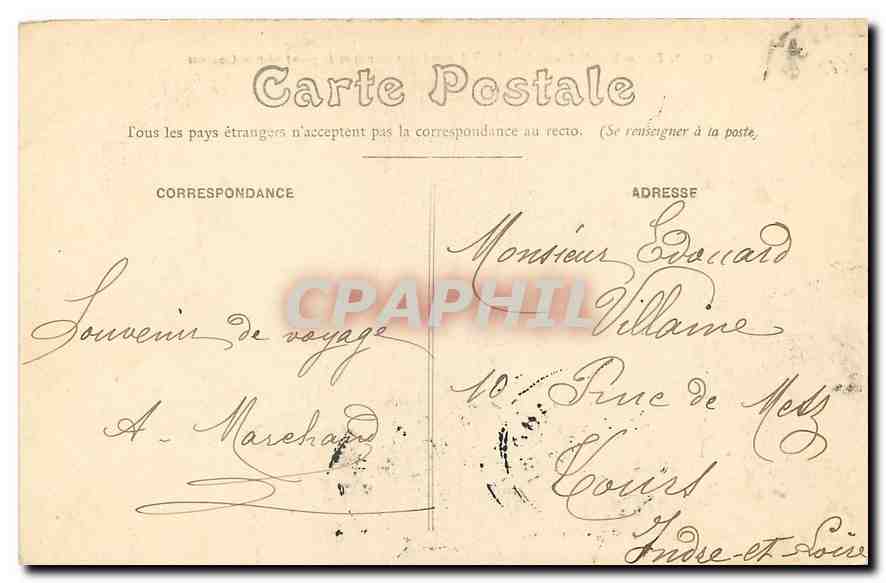 Carte Postale
Tous les pays étrangers n'acceptent pas la correspondance au recto. (Se renseigner à la poste)
CORRESPONDANCE
Souvenir de voyage
A - Marchand
ADRESSE
Monsieur Edouard
Villaine
10 Rue de Metz
Tours
Indre-et-Loire
CPAPHIL